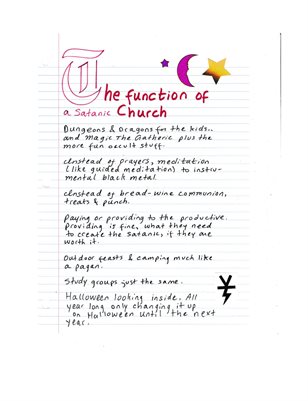 The function of
a Satanic Church
Dungeons & Dragons for the kids..
and Magic The Gatheric plus the
more fun occult stuff.
Instead of prayers, meditation
(like guided meditation) to instru-
mental black metal
Instead of bread-wine communion,
treats & punch.
Paying or providing to the productive.
Providing is fine, what they need
to create the satanic, if they are
worth it.
Outdoor feasts & camping much like
a pagan.
Study groups just the same.
Halloween looking inside. All
year long only changing it up
on Halloween until the next
year.